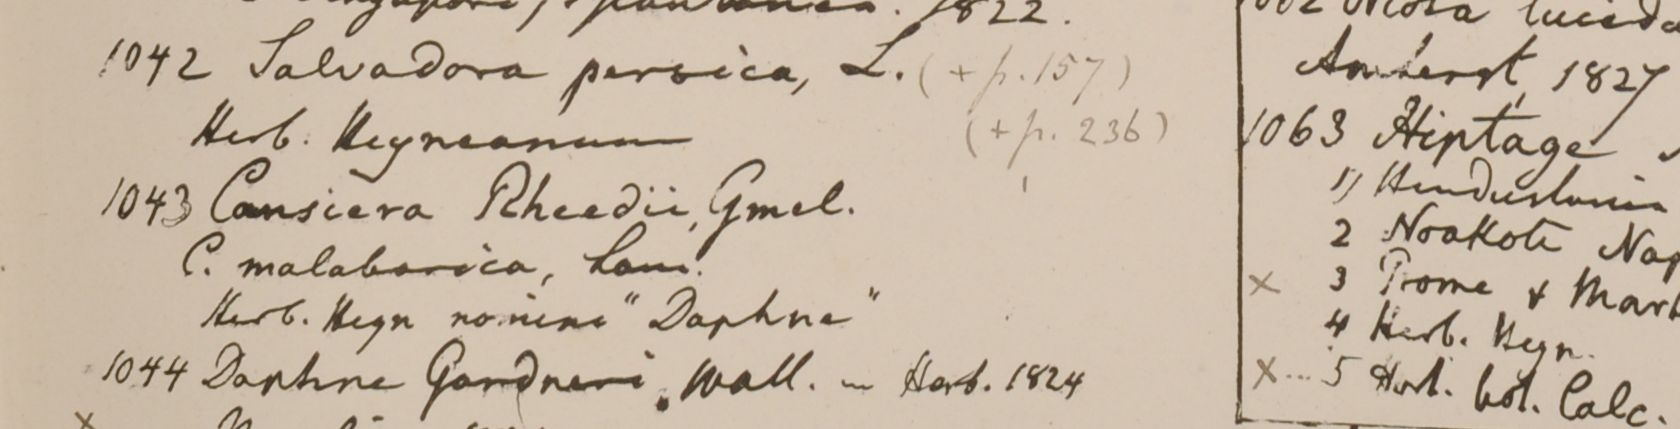 Singapore, spontanea. 1822.
1042 Salvadora persica, L. (+ p. 157)
Herb. Heyneanum (+ p. 236)
1043 Cansiera Rheedii, Gmel.
C. malabarica, Lam.
Herb. Heyn nomine "Daphne"
1044 Daphne Gardneri, Wall. in Herb. 1824
x
lucida
Amherst, 1827
1063 Hiptage
1) Hindustania
2 Noakote Nap
x 3 Prome & Mart
4 Herb. Heyn.
x ... 5 Hort. bot. Calc.